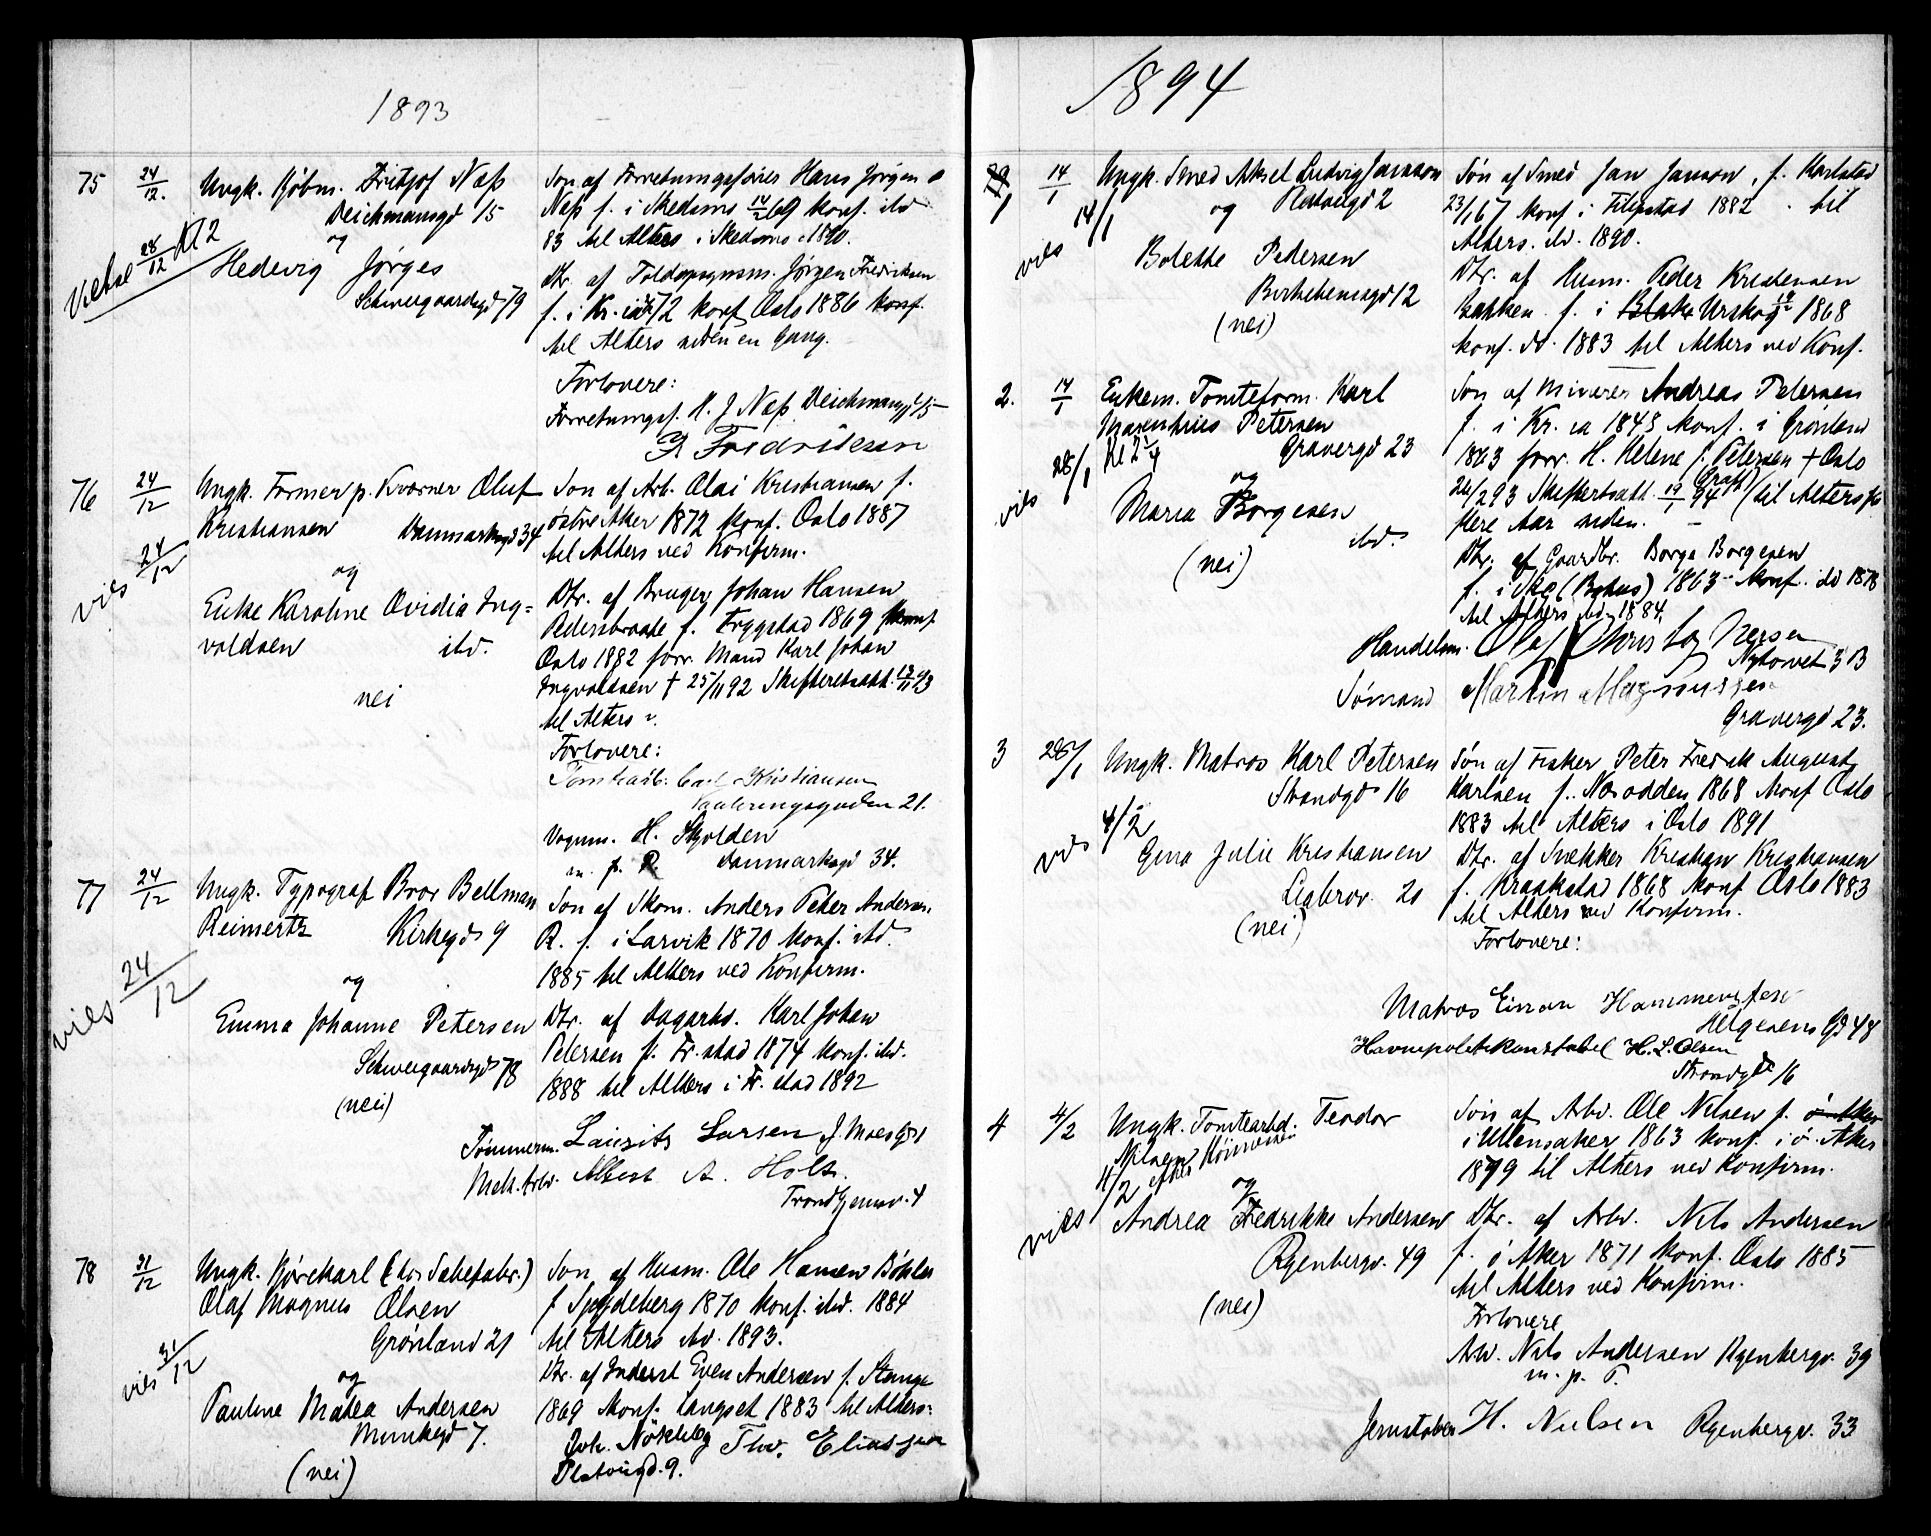 1893
75 24/12. Ungk. Kjøbm. Fritjof Næss
Deichmansgd 15
og
Vielse 28/12 Kl 2
Hedevig Jørges
Schweigaardsgd 79
Søn af Forretningsfører Hans Jørgen
Næss f. i Skedsmo 14/2 69 konf. ibd
83 til Alters i Skedsmo 1890.
Dtr. af Toldopsynsm. Jørgen Fredriksen
f. i Kr.ia 72 konf Oslo 1886 konf.
til Alters siden en Gang.
Forlovere:
Forretningsf. H. J Næss Deichmansgd 15
Fredriksen
76 24/12 Ungk. Former p. Kværner Oluf
Kristiansen Danmarksgd 34
vies 24/12
og
Enke Karoline Ovidia Ing=
valdsen ibd.
nei
Søn af Arb. Olai Kristiansen f.
østre Aker 1872 konf. Oslo 1887
til Alters ved Konfirm.
Dtr. af Bruger Johan Hansen
Pedersbraate f. Trygstad 1869 konf
Oslo 1882 forr. Mand Karl Johan
Ingvaldsen † 25/11 92 Skifteretsatt. 13/11 93
til Alters
Forlovere:
Tomtearb. Carl Kristiansen
21.
Vognm. H. Skjolden
m. p. R. Danmarksgd 34.
77 24/12 Ungk. Typograf Bror Bellman
Reimertz Kirkegd 9
vies 24/12
og
Emma Johanne Petersen
Schweigaardsgd 78
(nei)
Søn af Skom. Anders Peter Andersen
R. f. i Larvik 1870 konf. ibd.
1885 til Alters ved Konfirm.
Dtr. af Dagarb. Karl Johan
Petersen f. Fr.stad 1874 konf. ibd.
1888 til Alters i Fr. stad 1892
Tømmerm. Lauritz Larsen J. Moesgd 1
Mek. Arb. Albert A. Holt.
Trondhjemsv. 4
78 31/12 Ungk. Kjørekarl (hos Sæbefabr.)
Olaf Magnus Olsen
Grønland 21
vies 31/12
og
Pauline Matea Andersen
Munkegd 7.
(nei)
Søn af Husm. Ole Hansen Bøhler
f Spydeberg 1870 konf. ibd. 1884
til Alters ibd. 1893.
Dtr. af Inderst Even Andersen f. Stange
1869 konf. Langset 1883 til Alters
Joh. Nökleby Thv. Eliassen
Platousgd. 9.
1894
1 14/1 Ungk. Smed Aksel Ludvig Jansson
og Platousgd 2
vies 14/1
Bolette Pedersen
Birkebeinergd 12
(nei)
Søn af Smed Jan Janson, f. Karlstad
23/1 67 konf i Filipstad 1882 til
Alters. ibd. 1890.
Dtr. af Husm. Peder Kristensen
Bakken f. i Blaker Urskog 1868
konf. ibd. 1883 til Alters ved Konf.
2. 14/1 Enkem. Tomteform. Karl
Maxentius Petersen
Gravergd 23
vies 28/1 Kl 2 1/4
og
Maria Borgesen
ibd.
(nei)
Søn af Murer Andreas Petersen
f. i Kr. ca 1843 konf. i Grønland
1863 forr. H. Helene f. Petersen † Oslo
26/2 93 Skifteretsatt. 19/1 94 (til Alters for
flere Aar siden.
Dtr. af Gaardbr. Borge Borgesen
f. i Ske (Bohus) 1863 konf. ibd 1878
til Alters ibd 1884.
Handelsm. Olaf Christoffersen
Nytorvet 3 B
Sømand Martin Magnussen
Gravergd 23.
3 28/1 Ungk. Matros Karl Petersen
Strandgd 16
vies 4/2
Gina Julie Kristiansen
Ljabrov. 20
(nei)
Søn af Fisker Peter Fredrik August
Karlsen f. Næsodden 1868 konf Oslo
1883 til Alters i Oslo 1891
Dtr. af Snekker Kristian Kristiansen
f. Kraakstad 1868 konf Oslo 1883
til Alters ved Konfirm.
Forlovere:
Matros Einar
Helgesens Gd 48
Havnepolitikonstabel H. L. Olsen
Strandgd 16
4 4/2 Ungk. Tomtearbd. Teodor
Nilsen
vies 4/2
og
Andrea Fredrikke Andersen
Ryenbergv. 49
(nei)
Søn af Arb. Ole Nilsen f. ø Aker
i Ullensaker 1863 konf. i ø. Aker
1879 til Alters ved Konfirm.
Dtr. af Arb. Nils Andersen
f. ø Aker 1871 konf. Oslo 1885
til Alters ved Konfirm.
Forlovere
Arb. Nils Andersen Ryenbergv. 39
m. p. T.
Jernstøber H. Nielsen Ryenbergv. 33